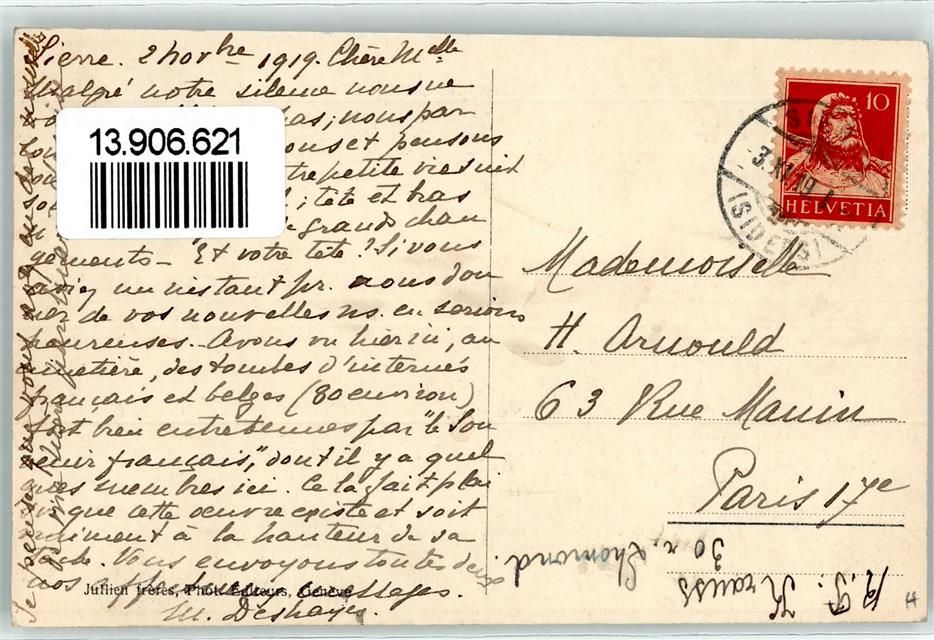 Sierre. 2 novbre 1919. Chère Melle
Malgré notre silence nous ne
pas; nous par
ons et pensons
petite vie suit
; tête et bras
grands chan
gements — Et votre tête? Si vous
aviez un instant pr. nous don
ner de vos nouvelles ns. en serions
heureuses. Avons vu hier ici, au
cimetière, des tombes d'internés
français et belges (80 environ)
fort bien entretenues par "le Sou
venir français", dont il y a quel
ques membres ici. Cela fait plai
sir que cette œuvre existe et soit
vraiment à la hauteur de sa
tâche. Vous envoyons toutes deux
nos affectueux messages.
M. Deshayes
13.906.621
Jullien frères, Phot. Editeurs, Genève
10
HELVETIA
3.XI.19
(SIDERS)
Mademoiselle
H. Arnould
63 Rue Manin
Paris 17e
30 r. Lhomond.
Krauss
H